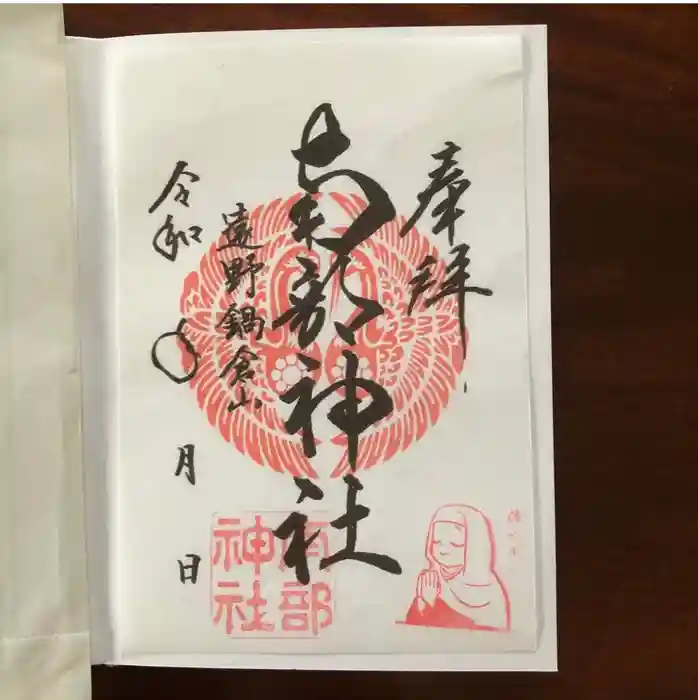 奉拝
南部神社
遠野鍋倉山
令和 年
月
日
南部
神社